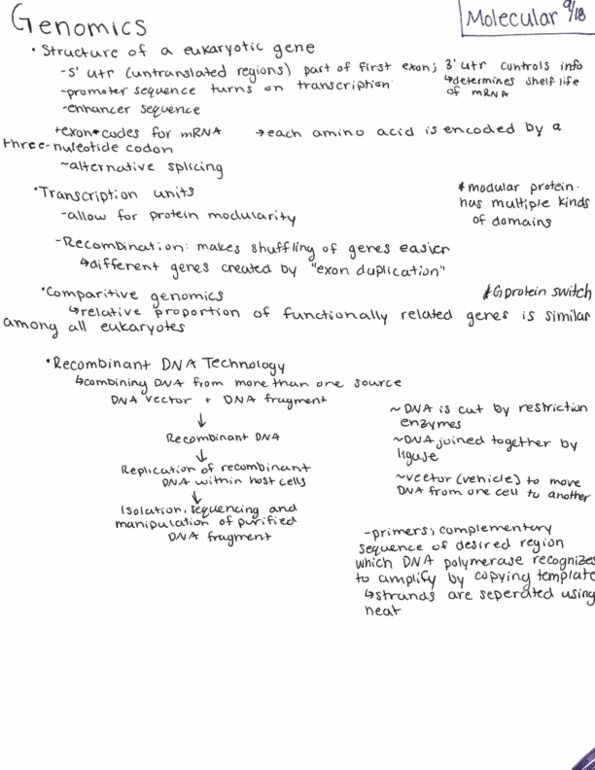 Genomics
Molecular 9/18
• Structure of a eukaryotic gene
-5' utr (untranslated regions) part of first exon; 3' utr controls info
↳determines shelf life
of mRNA
-promoter sequence turns on transcription
-enhancer sequence
*exon* codes for mRNA → each amino acid is encoded by a
three-nuleotide codon
~alternative splicing
•Transcription units
-allow for protein modularity
* modular protein.
has multiple kinds
of domains
-Recombination: makes shuffling of genes easier
↳different genes created by "exon duplication"
•Comparitive genomics
* G protein switch
↳relative proportion of functionally related genes is similar
among all eukaryotes
•Recombinant DNA Technology
↳combining DNA from more than one source
DNA vector + DNA fragment
↓
Recombinant DNA
↓
Replication of recombinant
DNA within host cells
↓
Isolation, sequencing and
manipulation of purified
DNA fragment
~DNA is cut by restriction
enzymes
~DNA joined together by
ligase
~vector (vehicle) to move
DNA from one cell to another
-primers; complementary
sequence of desired region
which DNA polymerase recognizes
to amplify by copying template
↳strands are seperated using
heat